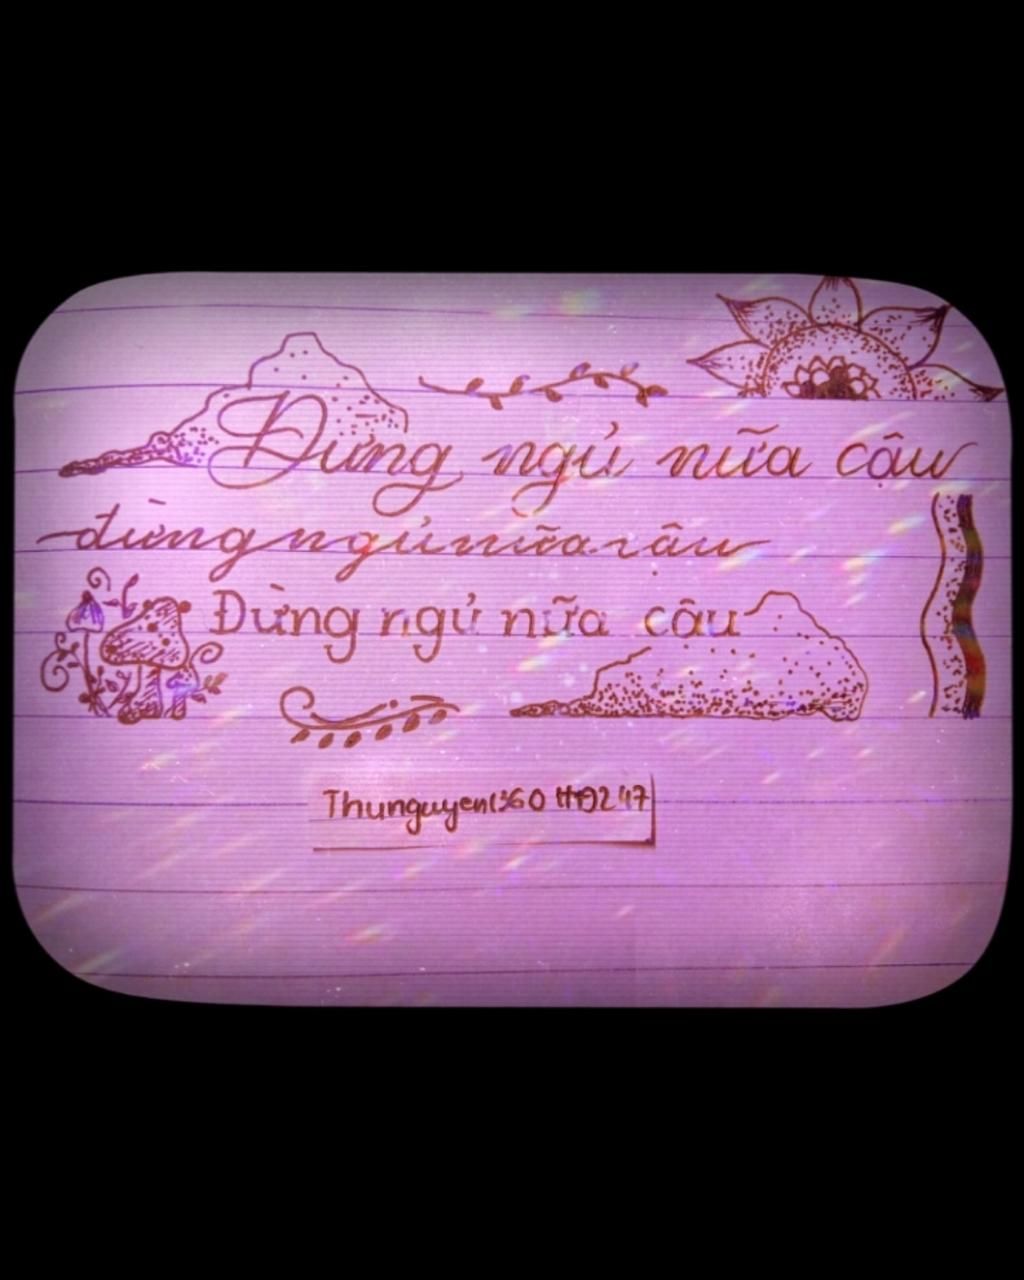 Đừng ngủ nữa cậu
đừng ngủ nữa cậu
Đừng ngủ nữa cậu